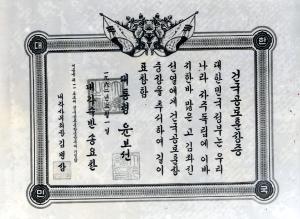 대 한
민 국
건국공로훈장증
대한민국 정부는 우리
나라 자주독립에 이바
지한바 많은 고
선열에게 건국공로훈장
을 추서하여 길이
표창함
대통령 윤보선
내각수반 송요찬
내각사무처장 김병삼